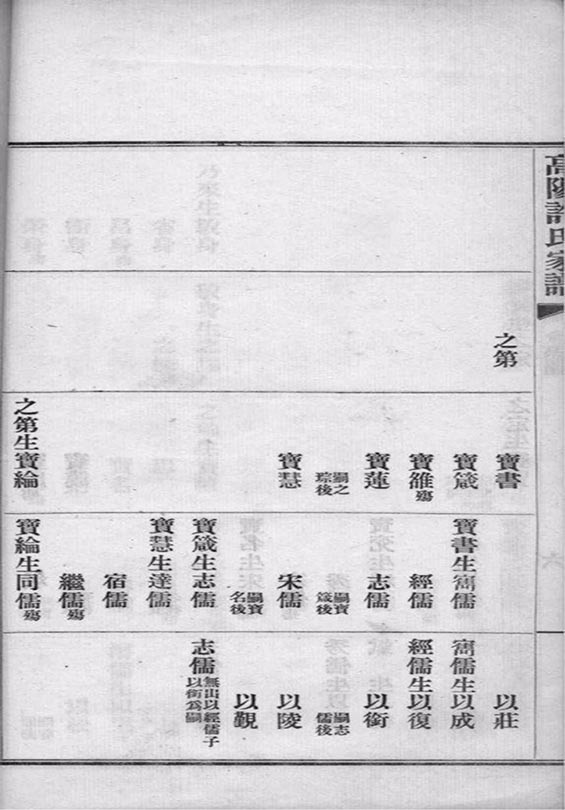 高陽許氏家譜
六
之第
寶書
寶箴
寶雒殤
寶蓮
嗣之琮後
寶慧
之第生寶綸
寶書生甯儒
經儒
志儒
嗣寶箴後
宋儒
嗣寶名後
寶箴生志儒
寶慧生達儒
宿儒
繼儒殤
寶綸生同儒殤
以莊
甯儒生以成
經儒生以復
以銜
嗣志儒後
以陵
以觀
志儒無出以經儒子以銜為嗣